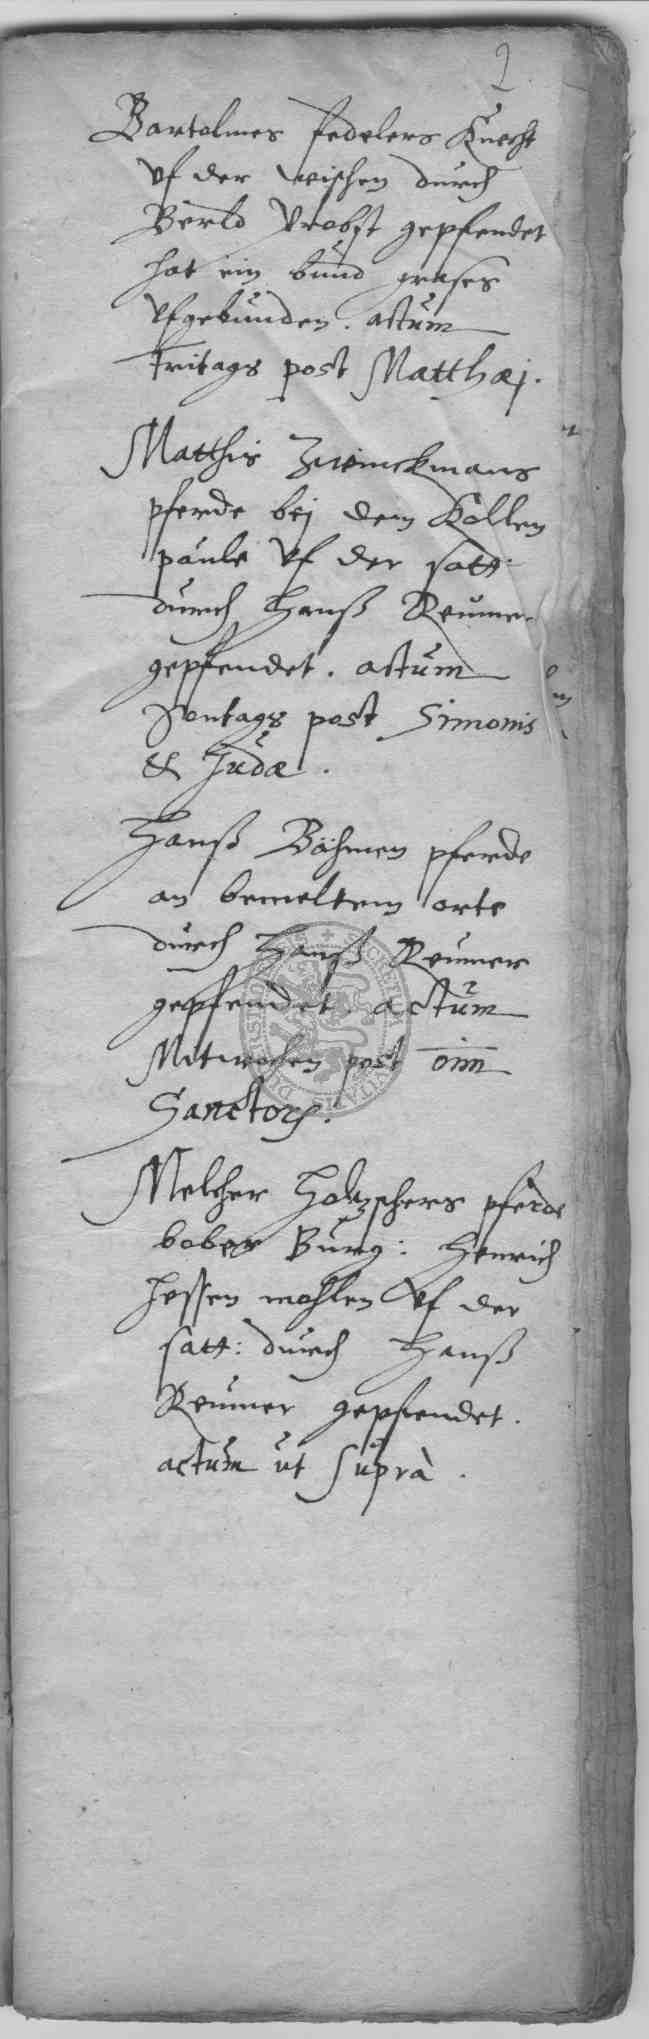 2
Bartolmes fedelers Knecht
vf der weischen durch
Berld Probst gepfendet
hat ein bund grases
vfgebunden. actum
fritags post Matthæj.
Matthis Zwinckmans
pferde bej dem Kollen
paule vf der satt:
durch Hanß Reumer
gepfendet. actum
Sontags post Simonis
& Judæ.
Hanß Böhmen pferde
an bemeltem orte
durch Hanß Reumer
gepfendet. actum
Mitwochen post oim
Sanctor.
Melcher Holtzschers pferde
bober Burg: Henrich
Hessen mohlen vf der
satt: durch Hanß
Reumer gepfendet.
actum ut suprà.